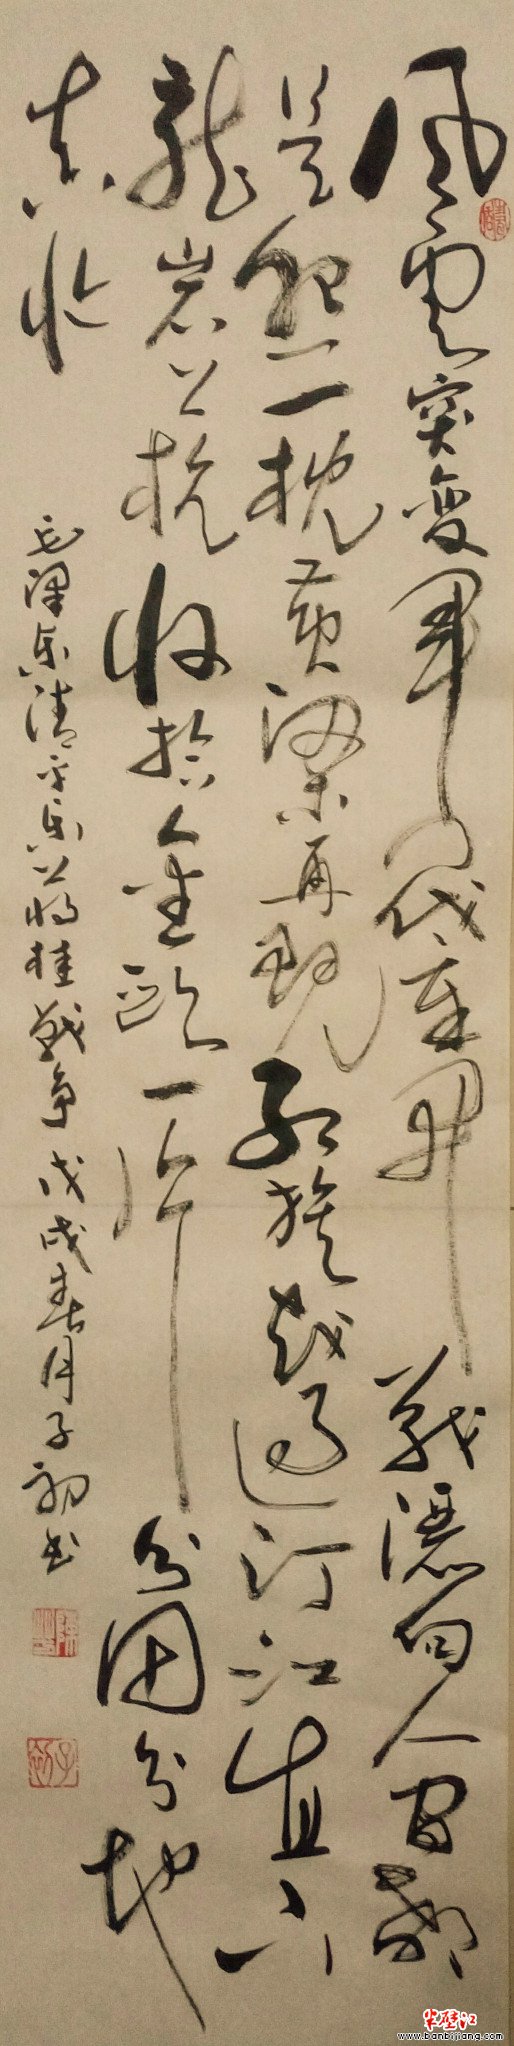 风雲突变軍閥重開戰灑向人间都
是怨一枕黄粱再现红旗越过汀江直下
龍岩上杭收拾金瓯一片分田分地
真忙
毛泽东清平乐蒋桂战争戊戌春月子初书
半壁江
www.banbijiang.com